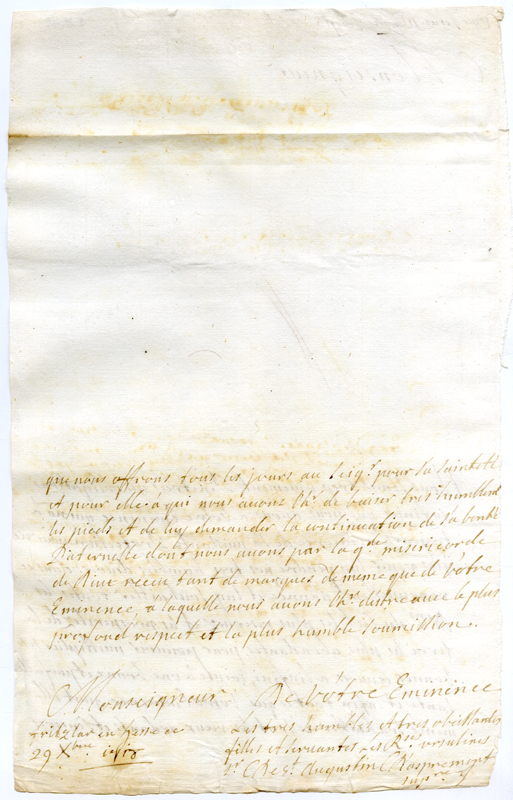 que nous offrons tous les jours au Seigr pour sa sainteté
et pour elle à qui nous avons lhr de baiser tres humblemt
les pieds et de luy demander la continuation de sa bonté
Paternelle dont nous avons par la gde misericorde
de Dieu receu tant de marques de meme que de Vôtre
Eminence, a laquelle nous avons lhr distre avec le plus
profond respect et la plus humble soumission.
Monseigneur
De Vôtre Eminence
fritzlar en hesse ce
29 Xbre
Les tres humbles et tres obeissantes
filles et servantes les Rses ursulines
Sr C De St Augustin
supre